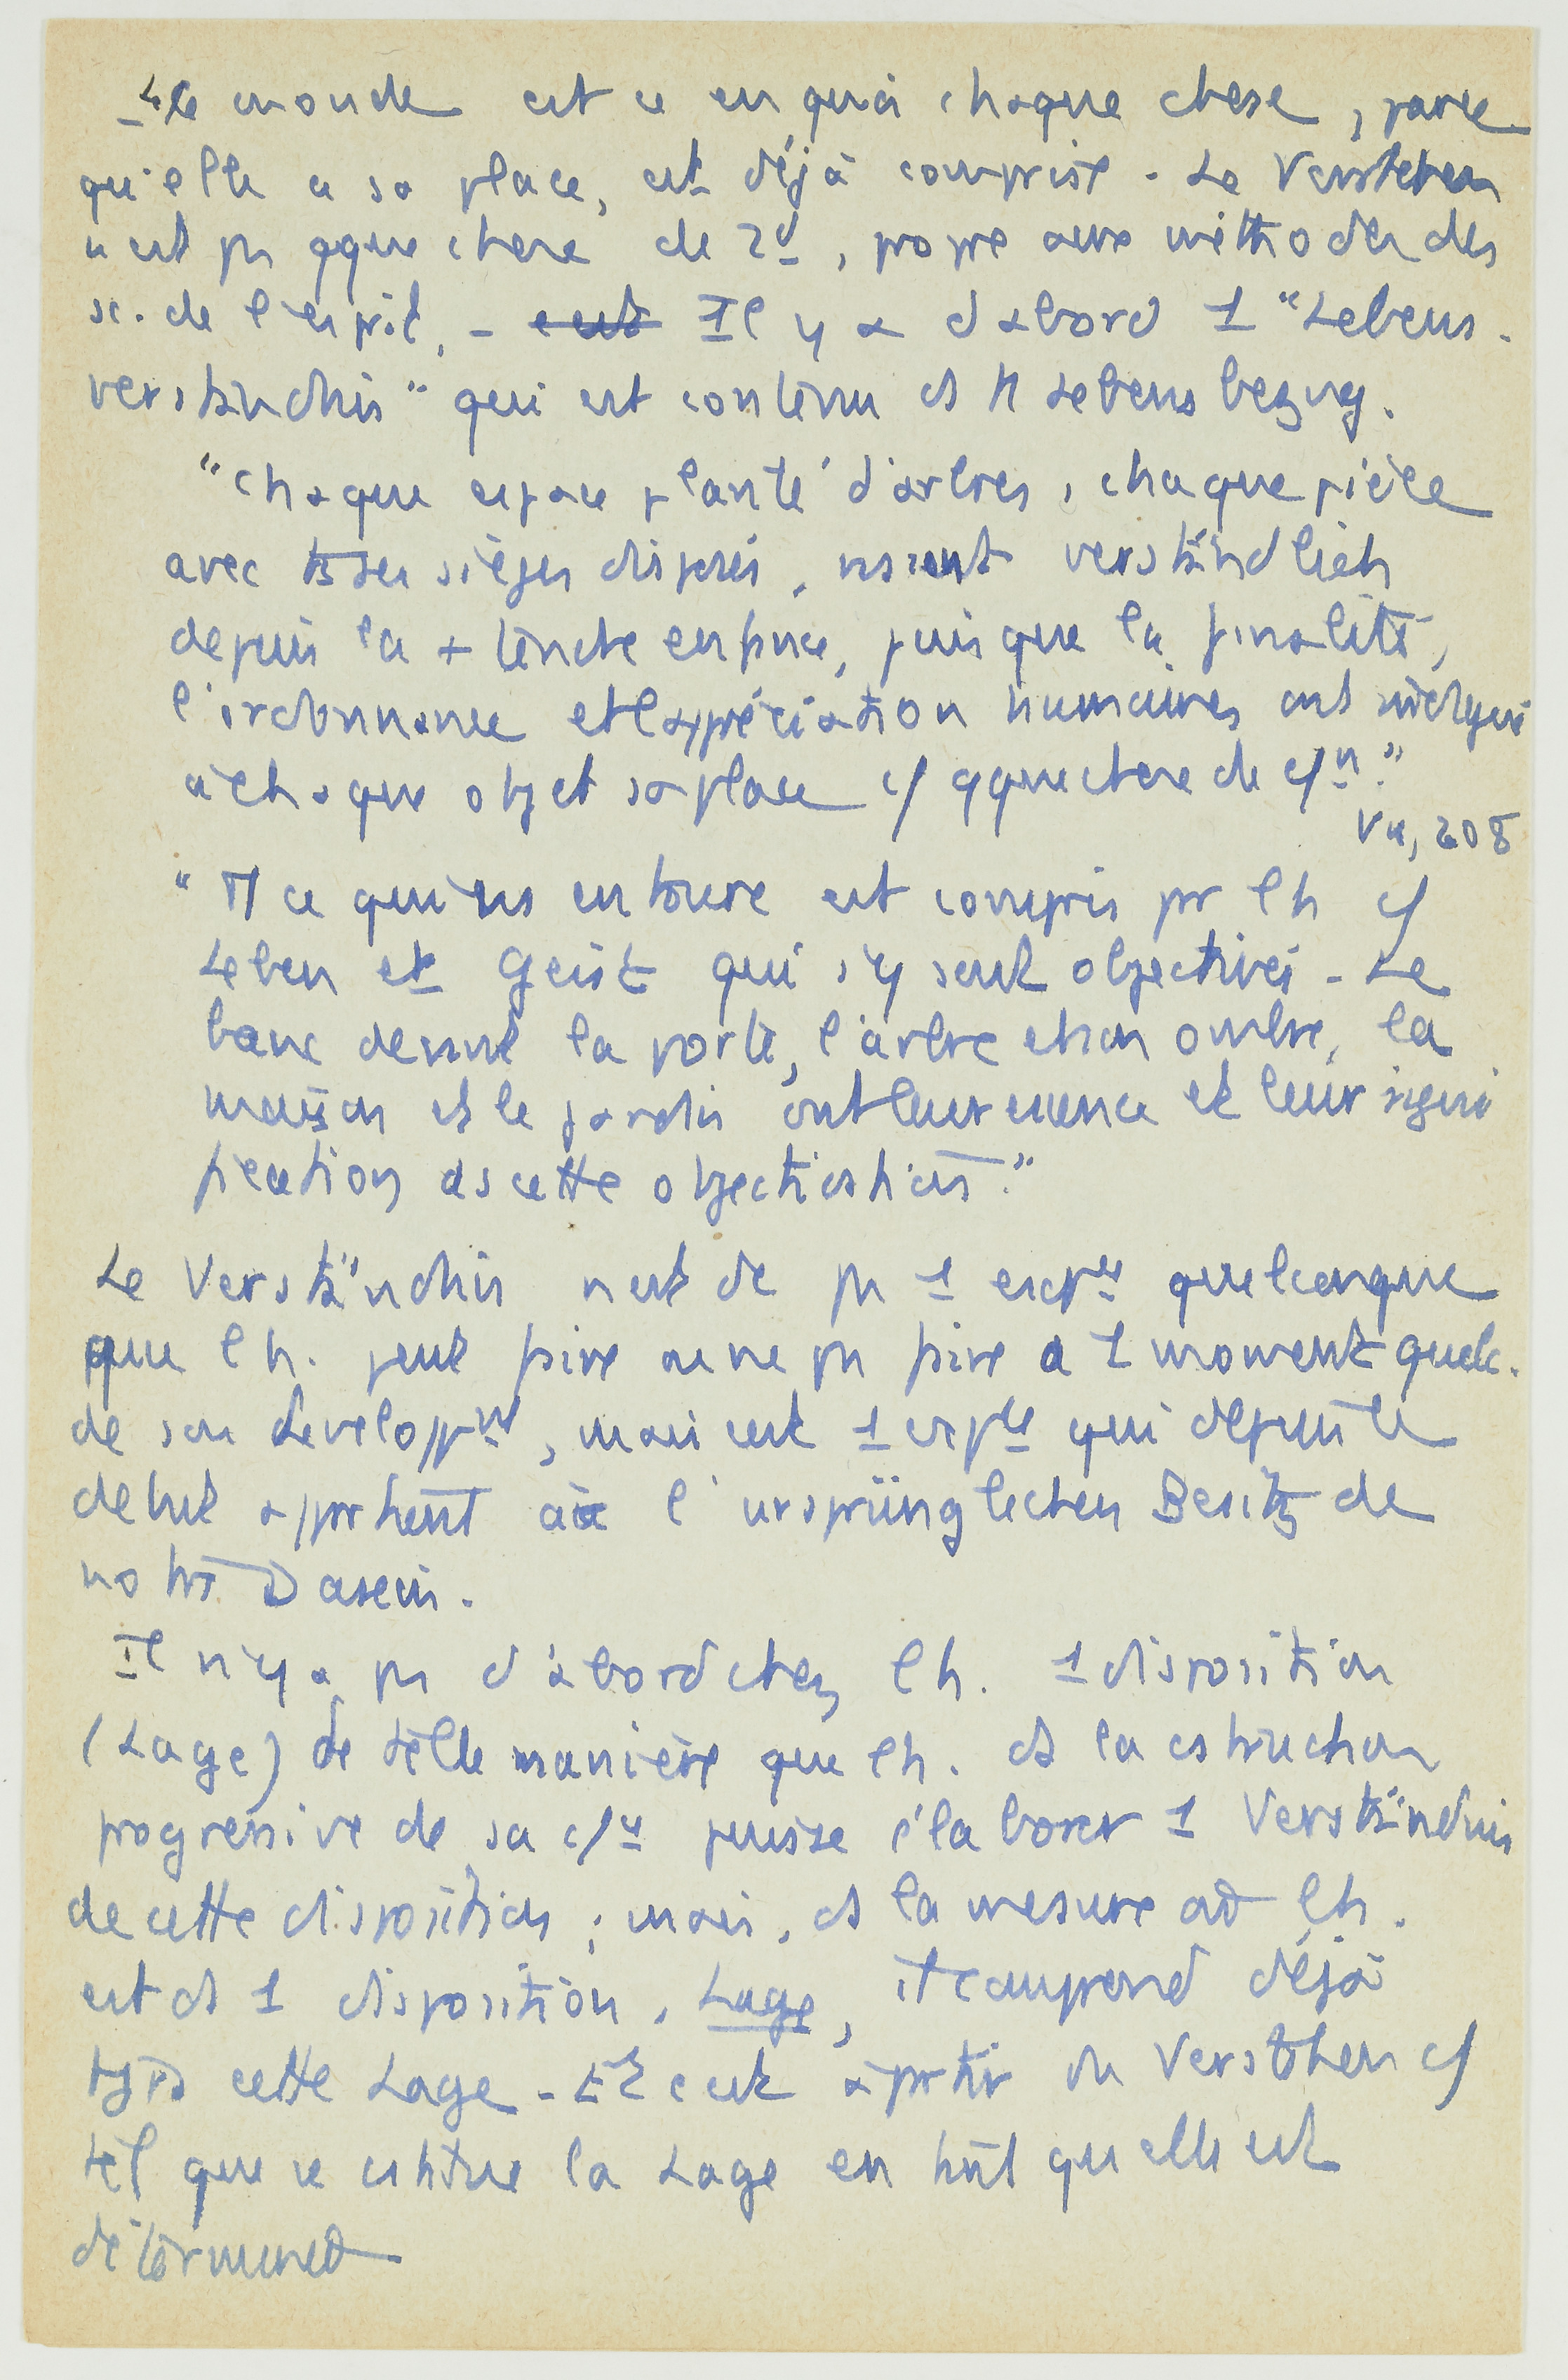 Le monde est ce en quoi chaque chose, parce
qu'elle a sa place, est déjà comprise. Le Verstehen
n'est pas qque chose de 2d, propre aux méthodes des
sc. de l'esprit. - Il y a d'abord 1 "Lebens-
verständnis" qui est contenu ds tt Lebensbezug.
"Chaque espace planté d'arbres, chaque pièce
avec ses sièges disposés, ns sont verständlich
depuis la + tendre enfance, puisque la finalité,
l'ordonnance et l'appréciation humaines ont assigné
à chaque objet sa place c/ qque chose de c/n."
VII, 208
"Tt ce qui ns entoure est compris pr l'h c/
Leben et Geist qui s'y sont objectivés - Le
banc devant la porte, l'arbre et son ombre, la
maison et le jardin ont leur essence et leur signi
fication ds cette objectivation."
Le Verständnis n'est dc pas 1 quelconque
que l'h. peut faire ou ne pas faire à 1 moment quelc.
de son developpmt, mais c'est 1 qui depuis le
début appartient à l'ursprünglichen Besitz de
notre Dasein.
Il n'y a pas d'abord chez l'h. 1 disposition
(Lage) de telle manière que l'h. ds la cstruction
progressive de sa puisse élaborer 1 Verständnis
de cette disposition ; mais, ds la mesure où l'h.
est ds 1 disposition, Lage, il comprend déjà
tjrs cette Lage - Et c'est à partir du Verstehen c/
tel que se cstitue la Lage en tant qu'elle est
déterminée